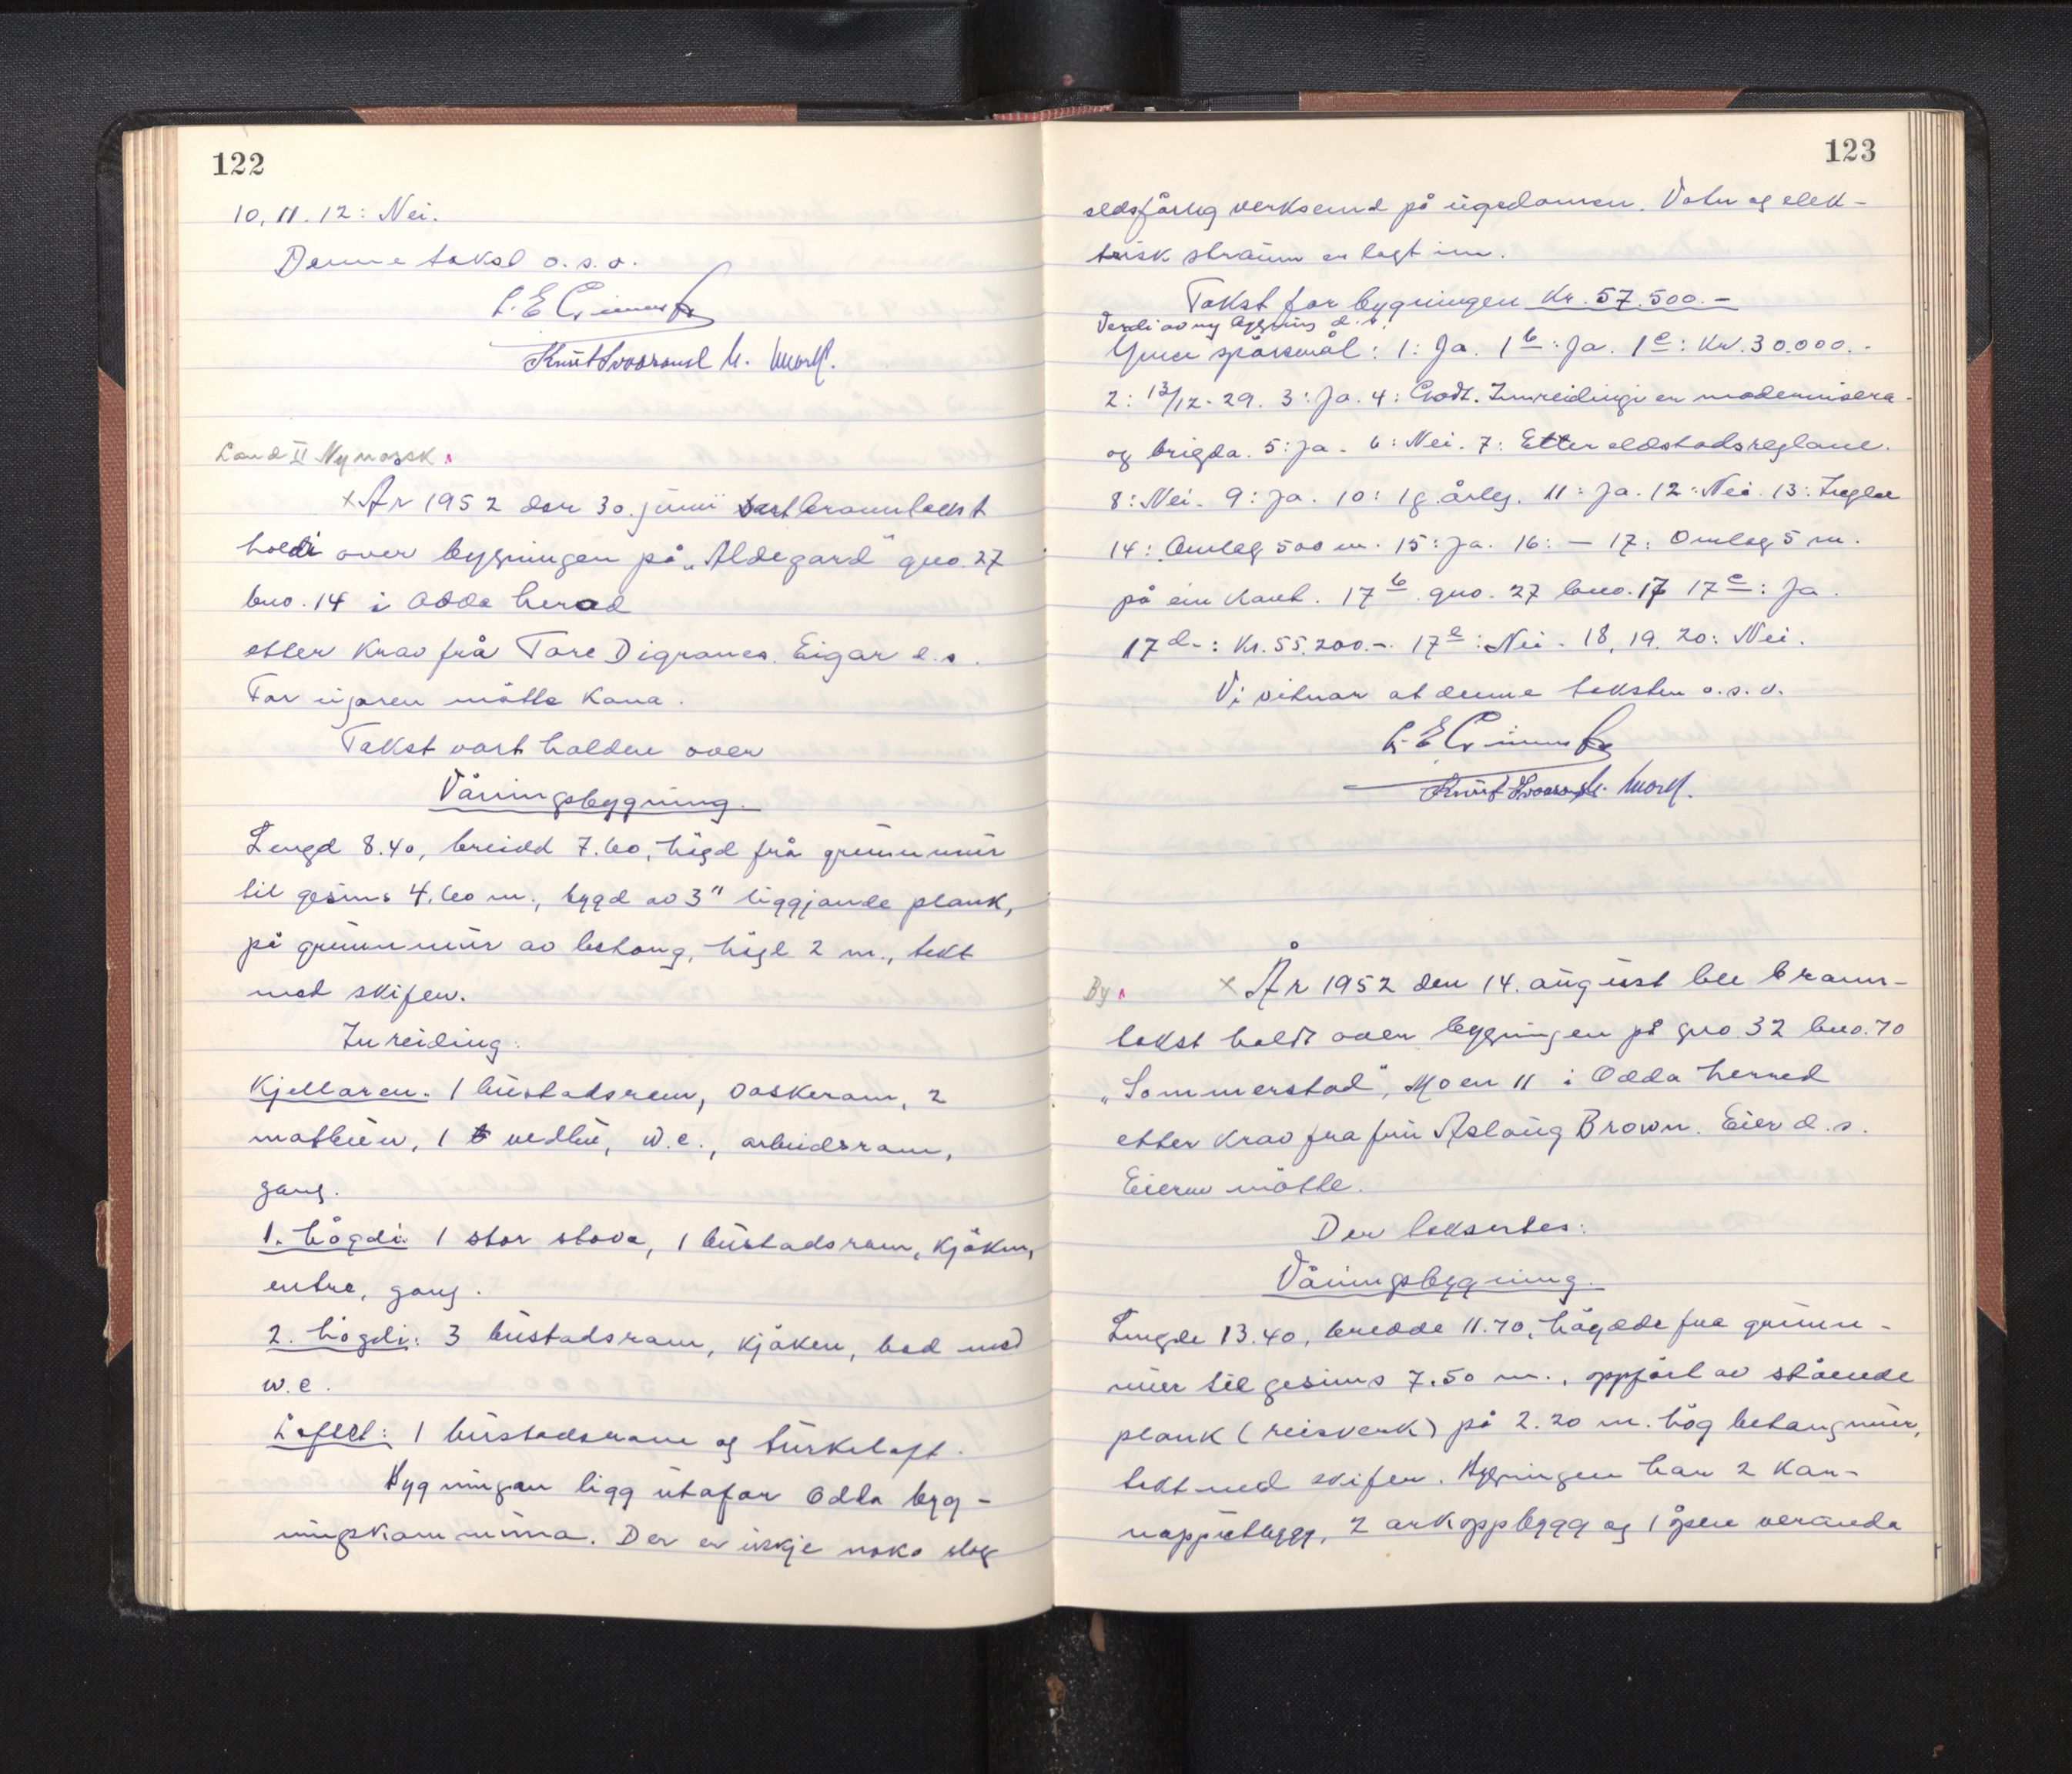 122
10, 11. 12: Nei.
Denne takst o.s.v.
Land II Nynorsk
x År 1952 den 30. juni vart branntakst
haldi over bygningen på „Aldegard" gno. 27
bno. 14 i Odda herad
etter krav frå Tore Digranes. Eigar d.s.
For eigaren møtte kona.
Takst vart halden over
Våningsbygning.
Lengd 8.40, breidd 7.60, högd frå grunnmur
til gesims 4.60 m., bygd av 3" liggjande plank,
på grunnmur av betong, högd 2 m., tekt
med skifer.
Inreiding:
Kjellaren: 1 bustadsrom, vaskerom, 2
matbuer, 1 vedbu, w.c., arbeidsrom,
gang.
1. högdi: 1 stor stova, 1 bustadsrom, kjöken,
entre, gang.
2. högdi: 3 bustadsrom, kjöken, bad med
w.c.
Loftet: 1 bustadsrom og turkeloft.
Bygningen ligg utafor Odda byg-
ningskommuna. Der er ikkje noko slag
123
eldsfårleg verksemd på eigedomen. Vatn og elek-
trisk straum er lagt inn.
Takst for bygningen Kr. 57.500.-
Verdi av ny bygning d.s.
Ymse spörsmål: 1: Ja. 1b: Ja. 1c: Kr. 30.000.-
2: 13/12-29. 3: Ja. 4: Godt. Innreidingi er modernisera
og brigda. 5: Ja. 6: Nei. 7: Etter eldstadsreglane.
8: Nei. 9: Ja. 10: 1 g. årleg. 11: Ja. 12: Nei. 13:
14: Omlag 500 m. 15: Ja. 16: — 17: Omlag 5 m.
på ein kant. 17b gno. 27 bno. 17 17c: Ja.
17d: Kr. 55.200.-. 17e: Nei. 18, 19. 20: Nei.
Vi vitnar at denne taksten o.s.v.
By
x År 1952 den 14. august ble brann-
takst holdt over bygningen på gno. 32 bno. 70
„Sommerstad", Moen 11 i Odda herred
etter krav fra fru Aslaug Brown. Eier d.s.
Eieren møtte.
Der taksertes:
Våningsbygning.
Lengde 13.40, bredde 11.70, högde fra grunn-
mur til gesims 7.50 m., oppfört av stående
plank (reisverk) på 2.20 m. hög betongmur,
tekt med skifer. Bygningen har 2 kar-
napputbygg, 2 arkoppbygg og 1 åpen veranda